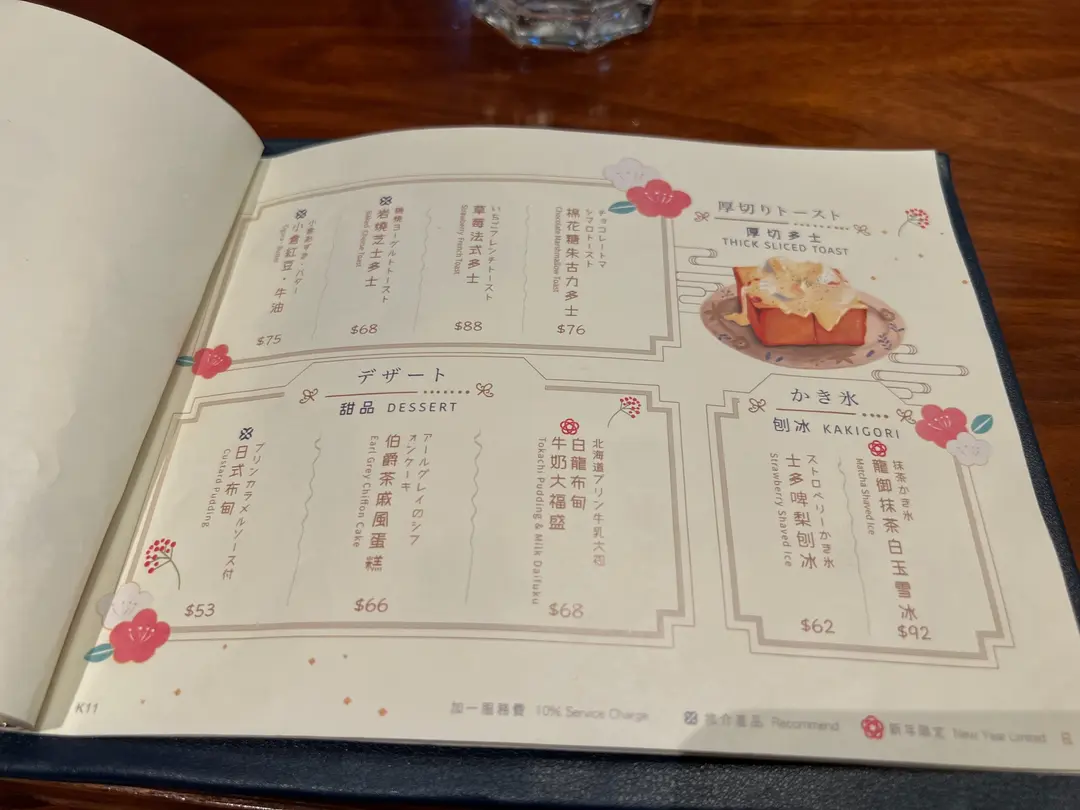 厚切りトースト
厚切多士
THICK SLICED TOAST
チョコレートマ
シマロトースト
棉花糖朱古力多士
Chocolate Marshmallow Toast
$76
いちごフレンチトースト
草莓法式多士
Strawberry French Toast
$88
岩燒芝士多士
$68
小倉紅豆・牛油
$75
かき氷
刨冰 KAKIGORI
抹茶かき氷
龍御抹茶白玉雪冰
Matcha Shaved Ice
$92
ストロベリーかき氷
士多啤梨刨冰
Strawberry Shaved Ice
$62
デザート
甜品 DESSERT
北海道プリン牛乳大福
白龍布甸
牛奶大福盛
Tokachi Pudding & Milk Daifuku
$68
アールグレイのシフ
ォンケーキ
伯爵茶戚風蛋糕
Earl Grey Chiffon Cake
$66
プリンカラメルソース付
日式布甸
Custard Pudding
$53
K11
加一服務費 10% Service Charge
推介產品 Recommend
新年限定 New Year Limited